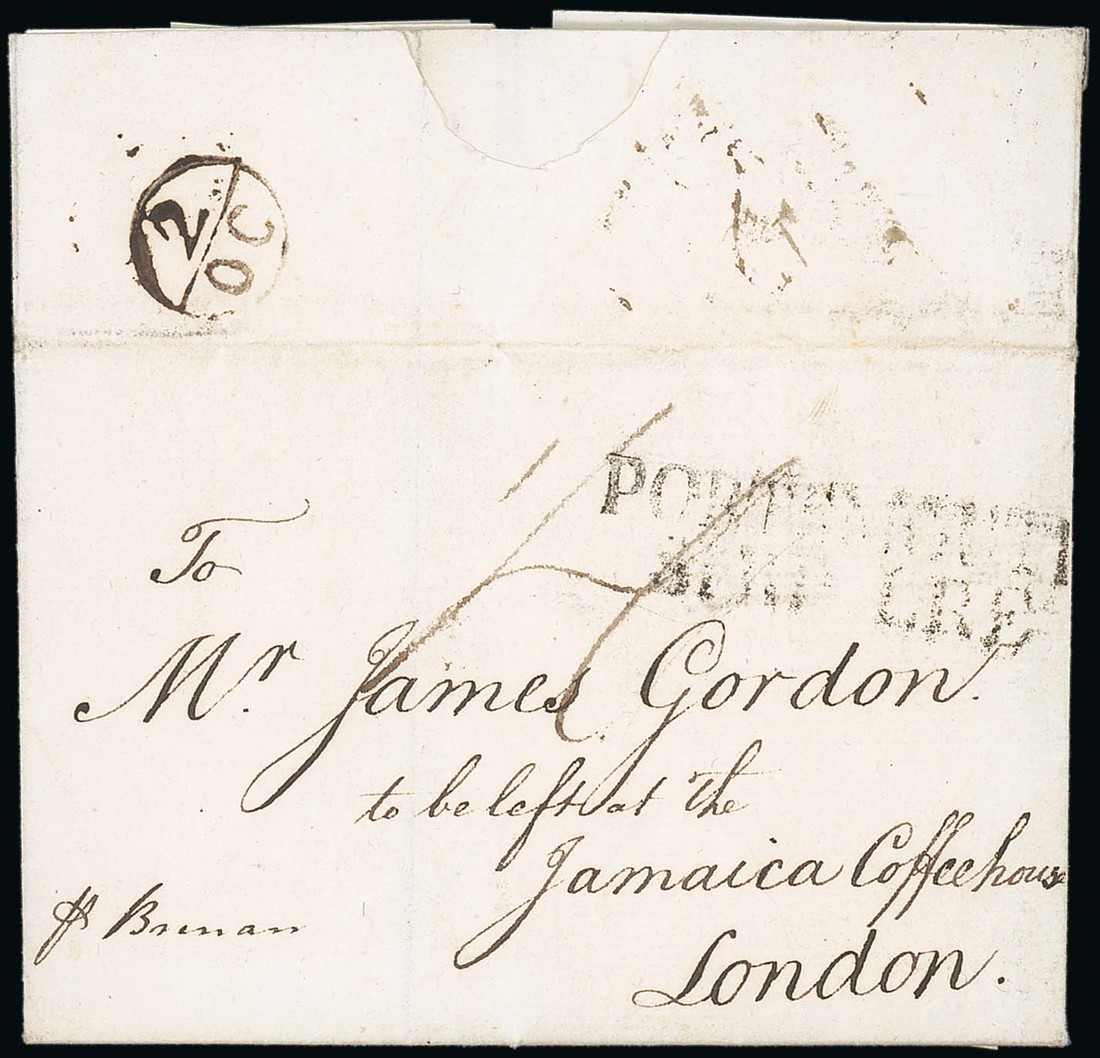 12
OC
PORTSMOUTH
SHIP LRE
To
Mr. James Gordon.
to be left at the
Jamaica Coffeehouse
London.
⅌ Brenan